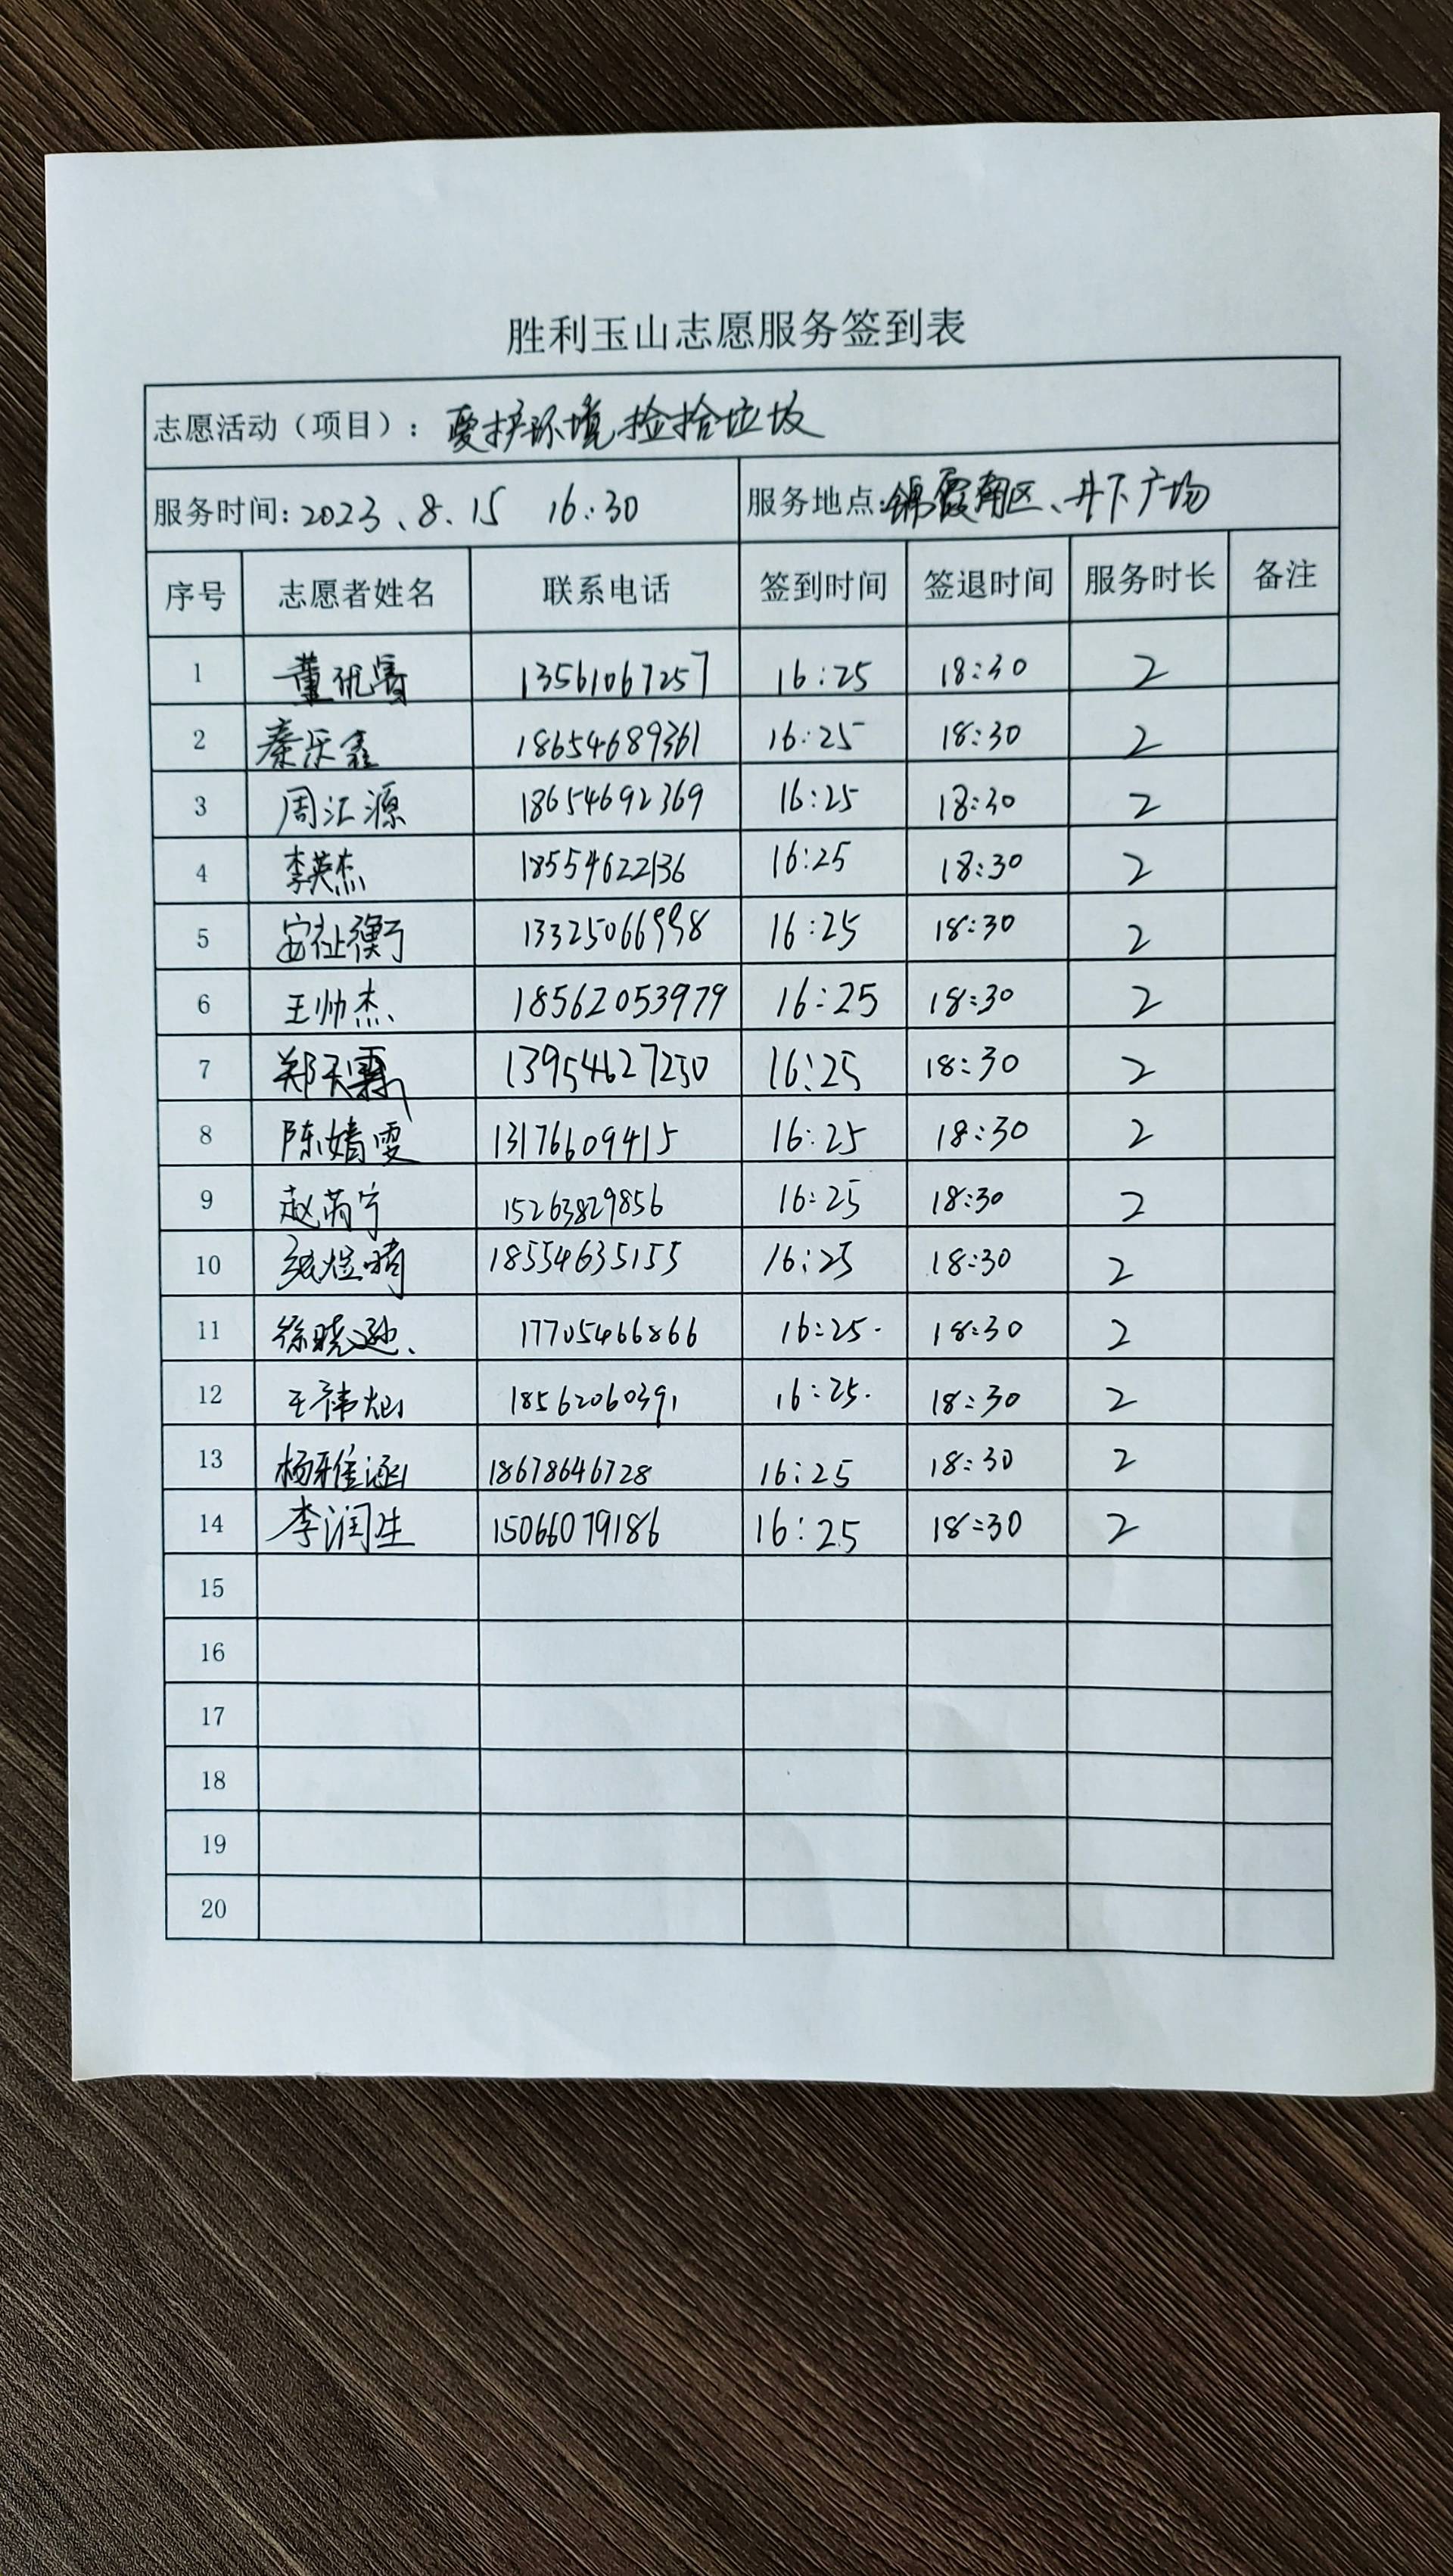 胜利玉山志愿服务签到表
志愿活动（项目）：爱护环境捡拾垃圾
服务时间：2023、8、15 16:30 服务地点：锦霞南区、井下广场
序号 志愿者姓名 联系电话 签到时间 签退时间 服务时长 备注
1 董优 13561067257 16:25 18:30 2
2 秦乐鑫 18654689361 16:25 18:30 2
3 周汇源 18654692369 16:25 18:30 2
4 李英杰 18554622136 16:25 18:30 2
5 安祉衡 13325066998 16:25 18:30 2
6 王帅杰 18562053979 16:25 18:30 2
7 郑天霖 13954627250 16:25 18:30 2
8 陈婧雯 13176609415 16:25 18:30 2
9 赵芮宁 15263829856 16:25 18:30 2
10 张煜晴 18554635155 16:25 18:30 2
11 徐晓逊、 17705466866 16:25. 18:30 2
12 王祎灿 18562060391 16:25. 18:30 2
13 杨雅涵 18678646728 16:25 18:30 2
14 李润生 15066079186 16:25 18:30 2
15
16
17
18
19
20